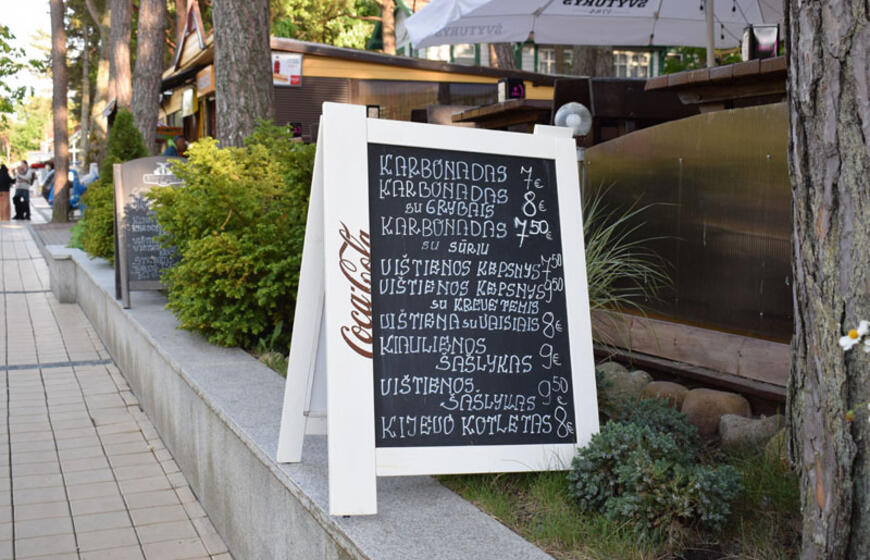 ŠVYTURYS
1784
KARBONADAS 7€
KARBONADAS
SU GRYBAIS 8€
KARBONADAS 7,50€
SU SŪRIU
VIŠTIENOS KEPSNYS 7,50
VIŠTIENOS KEPSNYS 9,50
SU KREVETEMIS
VIŠTIENA SU VAISIAIS 8€
KIAULIENOS
ŠAŠLYKAS 9€
VIŠTIENOS
ŠAŠLYKAS 9,50€
KIJEVO KOTLETAS 8€
Coca-Cola